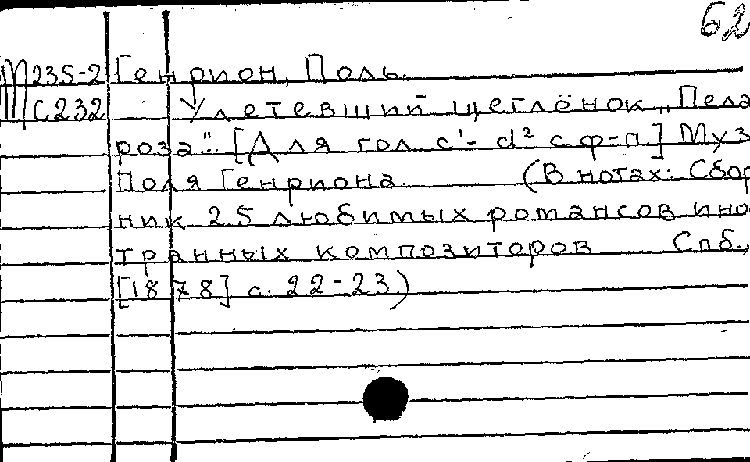 62
М235-2 Генрион, Поль.
С232 Улетевший щеглёнок „Пела
роза". [Для гол. c¹- d² с ф-п.] Муз
Поля Генриона. (В нотах: Сбор
ник 25 любимых романсов ино
транных композиторов Спб.,
[1878] с. 22-23)